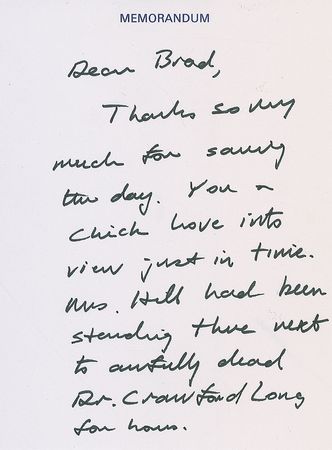 MEMORANDUM
Dear Brad,
Thanks so very
much for saving
the day. You &
Chick hove into
view just in time.
Mrs. Hill had been
standing there next
to awfully dead
Dr. Crawford Long
for hours.